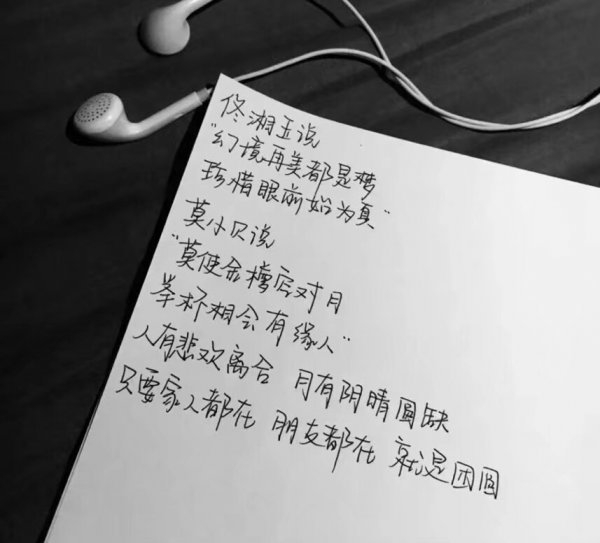 佟湘玉说
“幻境再美都是梦
珍惜眼前始为真”
莫小贝说
“莫使金樽空对月
举杯相会有缘人”
人有悲欢离合 月有阴晴圆缺
只要家人都在 朋友都在 就是团圆